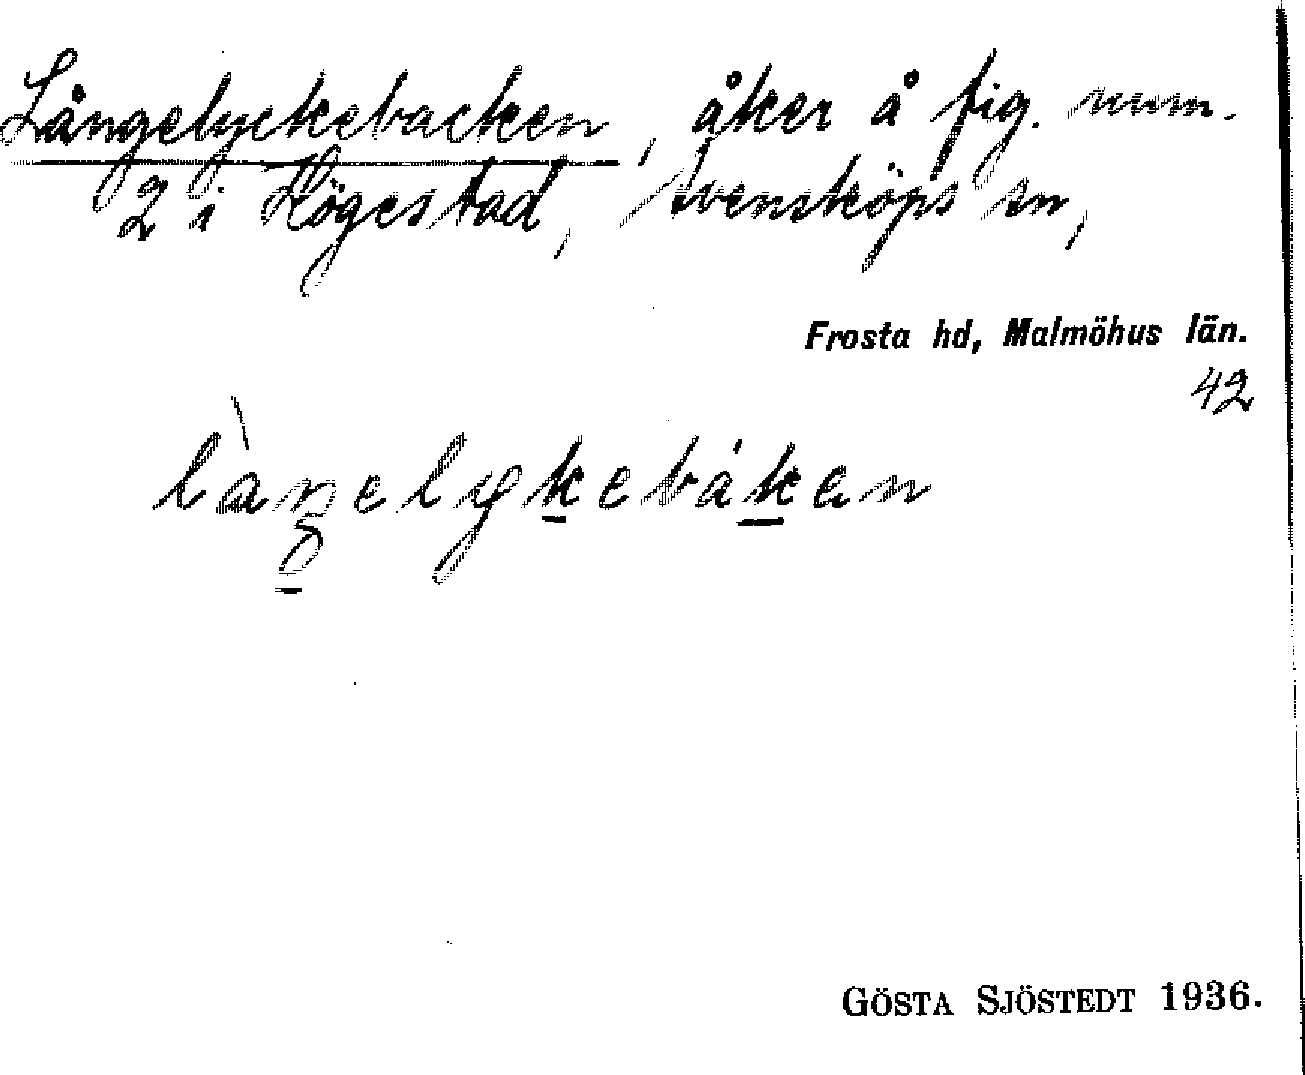 Långelyckebacken, åker å fig. num.
2 i Högestad, Svensköps sn,
Frosta hd, Malmöhus län.
42
làŋelykebáken
GÖSTA SJÖSTEDT 1936.